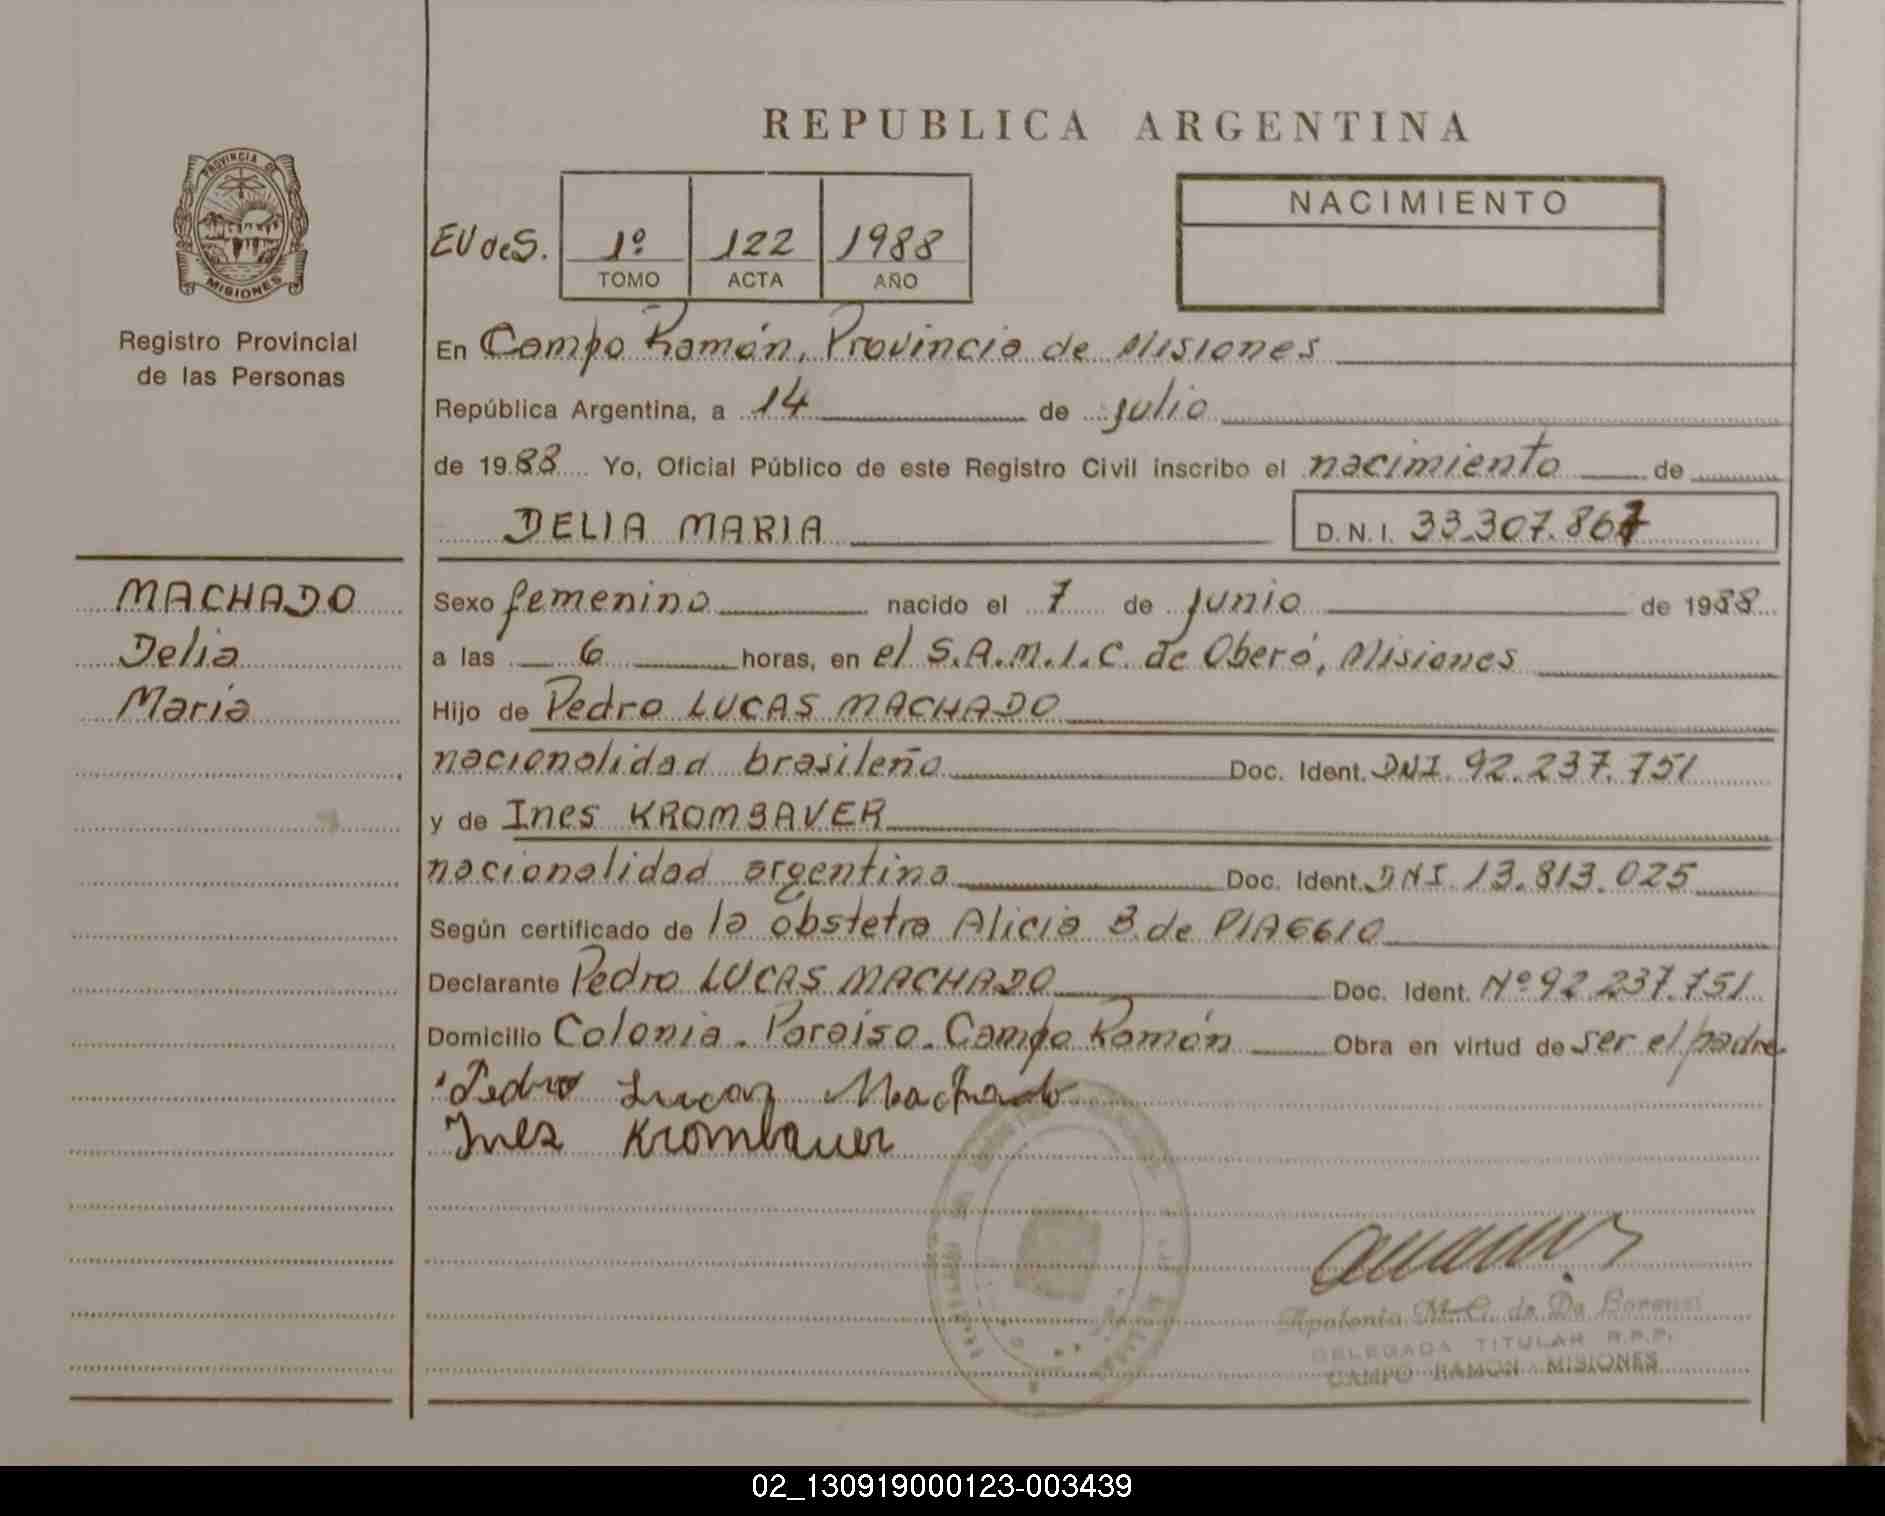 REPUBLICA ARGENTINA
PROVINCIA DE
MISIONES
Registro Provincial
de las Personas
EV deS. 1º 122 1988
TOMO ACTA AÑO
NACIMIENTO
En Campo Ramón, Provincia de Misiones
República Argentina, a 14 de julio
de 1988 Yo, Oficial Público de este Registro Civil inscribo el nacimiento de
DELIA MARIA D.N.I. 33.307.867
MACHADO
Delia
Maria
Sexo femenino nacido el 7 de junio de 1988
a las 6 horas, en el S.A.M.I.C. de Oberá, Misiones
Hijo de Pedro LUCAS MACHADO
nacionalidad brasileño Doc. Ident. DNI. 92.237.751
y de Ines KROMBAVER
nacionalidad argentina Doc. Ident. DNI 13.813.025
Según certificado de la obstetra Alicia B. de PIAGGIO
Declarante Pedro LUCAS MACHADO Doc. Ident. Nº 92.237.751
Domicilio Colonia. Paraiso. Campo Ramón Obra en virtud de ser el padre
Pedro Lucas Machado
Ines Krombauer
Apolonia M. C. de Da
DELEGADA TITULAR R.P.P.
CAMPO RAMON MISIONES
02_130919000123-003439